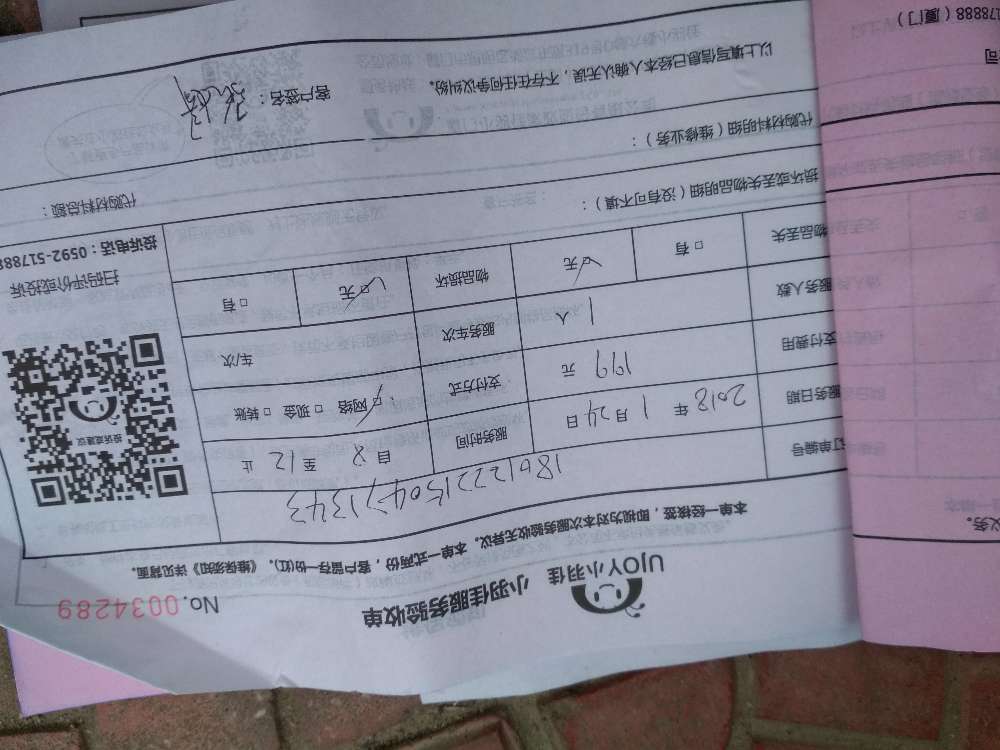 UJOY小羽佳 小羽佳服务验收单
No. 0034289
本单一经核签，即视为对本次服务验收无异议。本单一式两份，客户留存一份(红)。《维保须知》详见背面。
订单编号 180122150471343
服务日期 2018 年 1 月 24 日 服务时间 自 8 至 12 止
支付费用 199 元 支付方式 □网络 □ 现金 □ 转账
服务人数 1 人 服务车次 车次
物品丢失 □ 有 □ 无 物品损坏 □ 无 □ 有
投诉或建议
扫码评价或投诉
投诉电话：0592-517888
损坏或丢失物品明细（没有可不填）：
代购材料明细（维修业务）：
代购材料总额：
以上填写信息已经本人确认无误，不存在任何争议纠纷。
客户签名：
务。
司
178888（厦门）